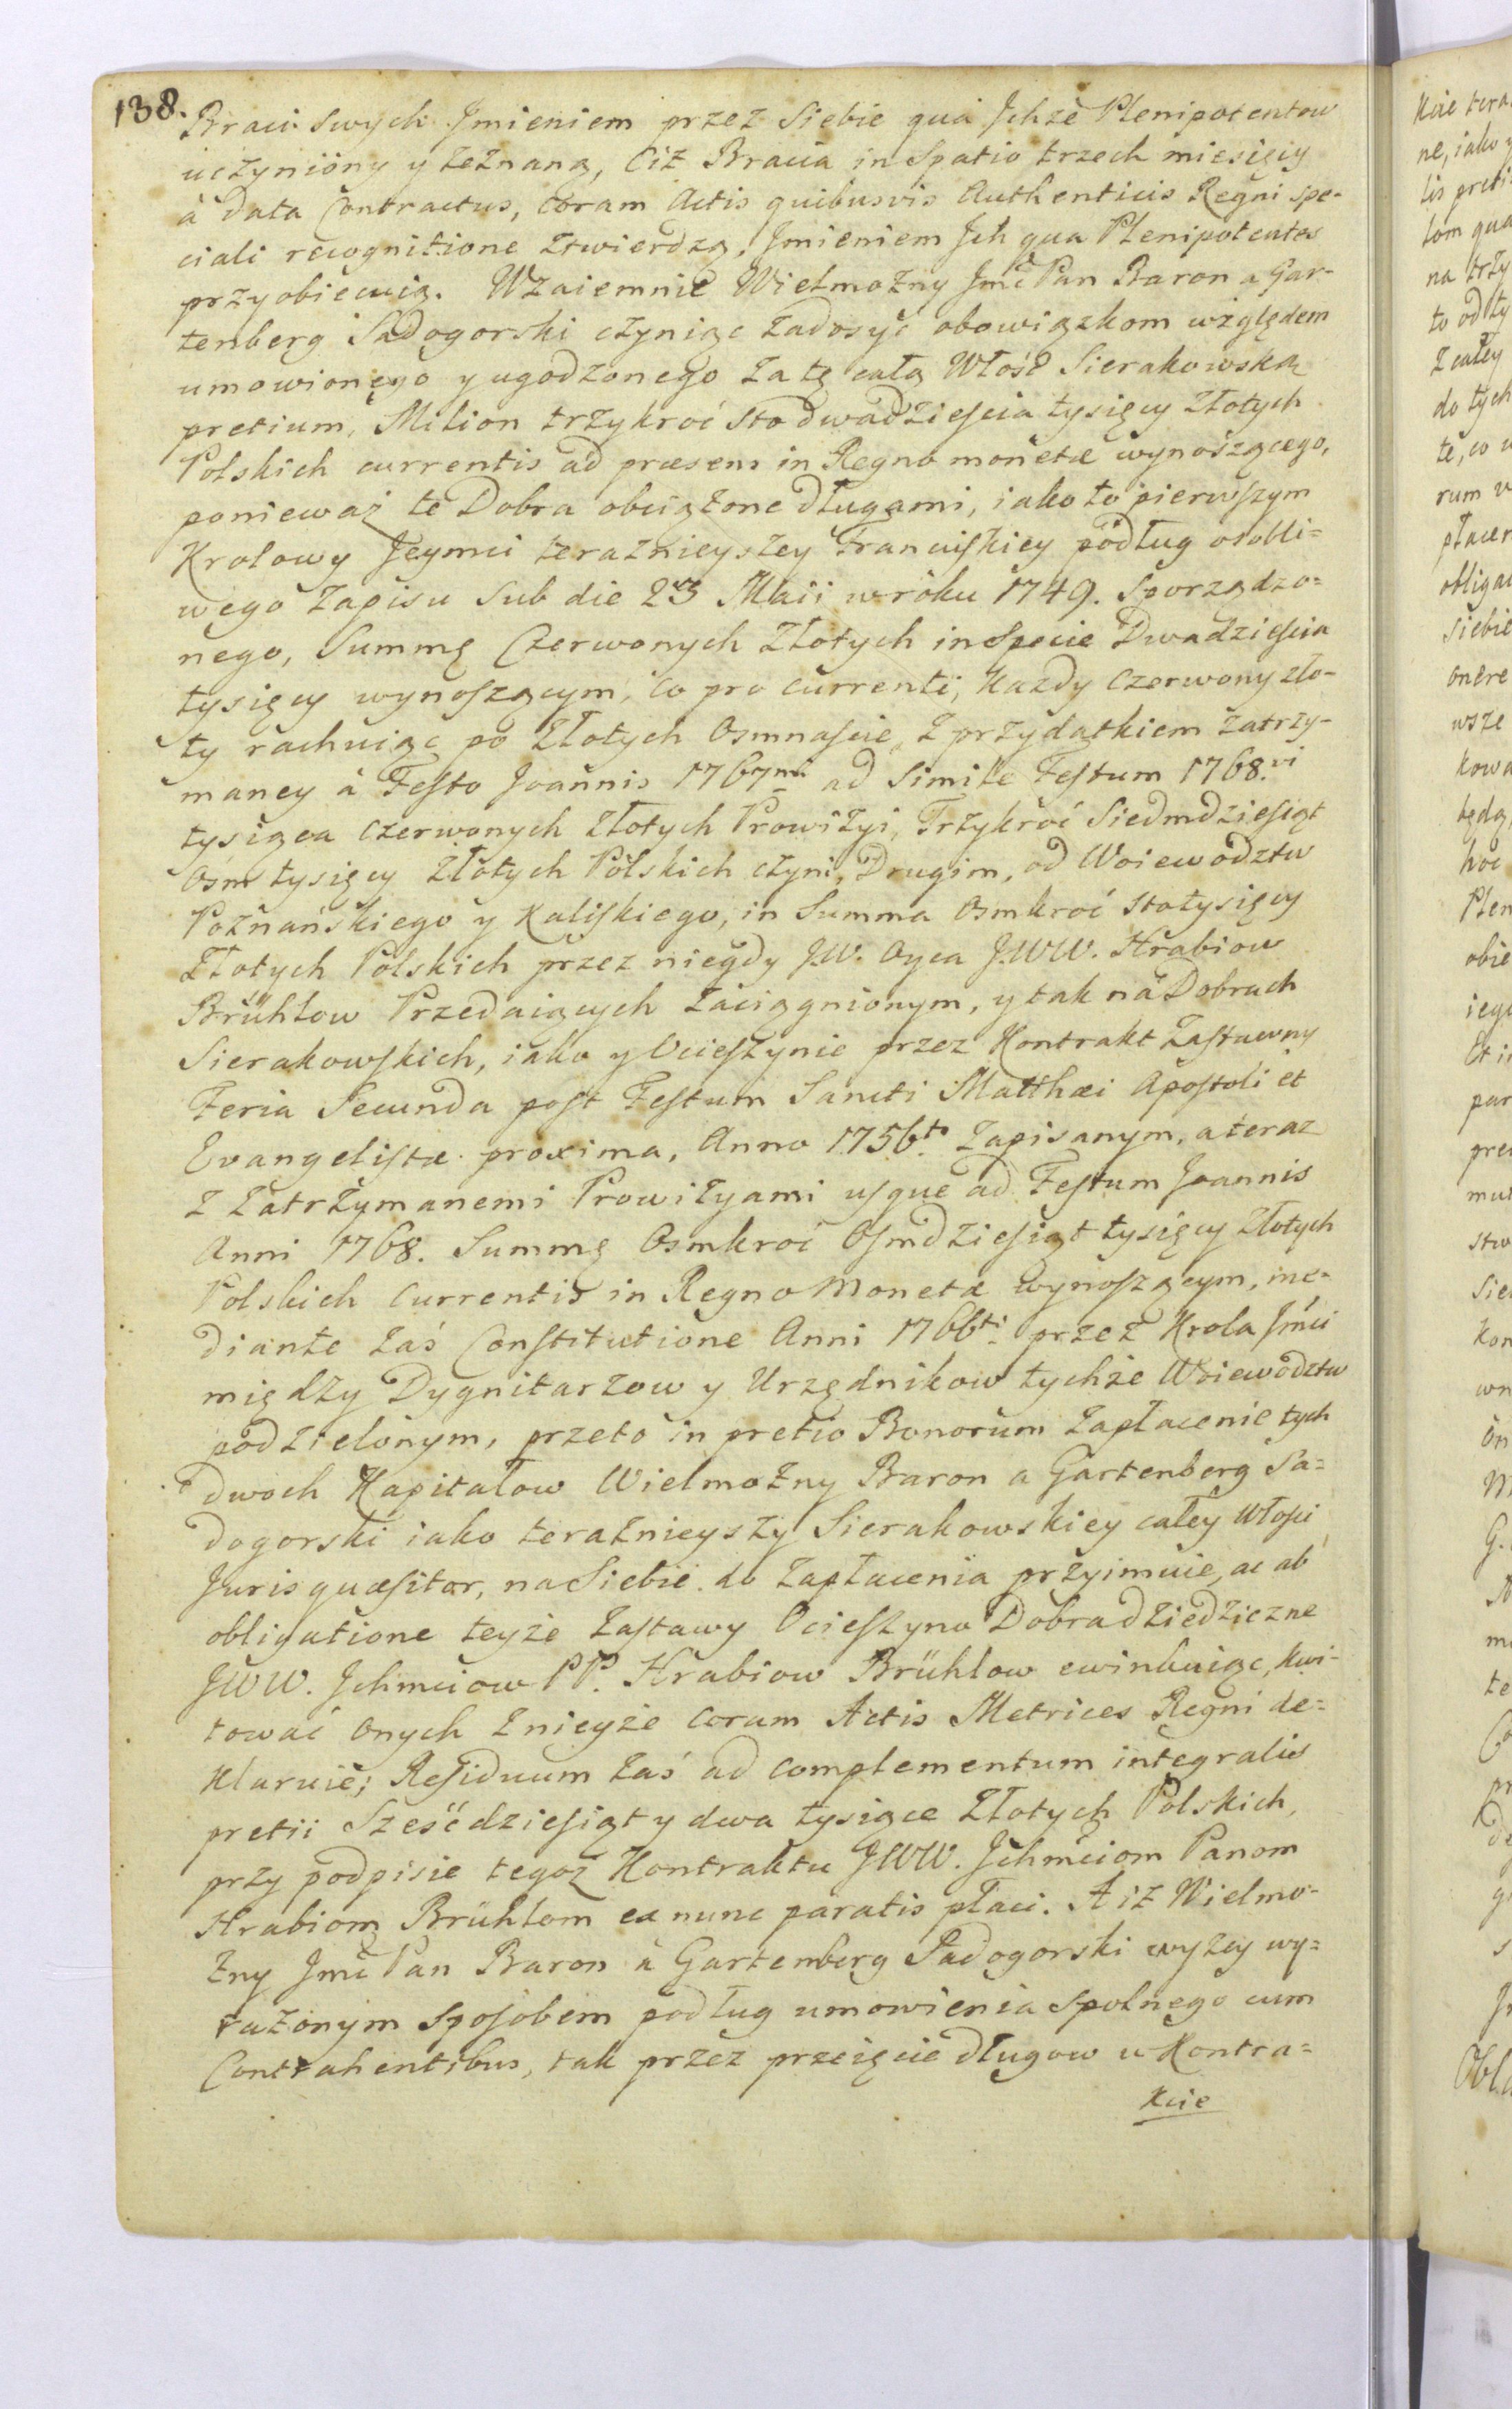 138.
Braci swych Jmieniem przez Siebie qua Jchże Plenipotentow
uczyniony y zeznaną, Ciż Bracia in Spatio trzech miesięcy
à data Contractus, coram Actis quibusvis Authenticis Regni spe-
ciali recognitione ztwierdzą, Jmieniem Jch qua Plenipotentes
przyobiecuią. Wzaiemnie Wielmożny Jmć Pan Baron a Gar-
tenberg Sadogorski czyniąc zadosyć obowiązkom względem
umowionego y ugodzonego za tę całą Włość Sierakowską
pretium, Milion trzykroć sto dwadzieścia tysięcy Złotych
Polskich currentis ad præsens in Regno monetæ wynoszącego,
ponieważ te Dobra obciążone długami, iako to pierwszym
Krolowy Jeymci teraznieyszey Francuskiey podług osobli=
wego Zapisu sub die 23 Maii w roku 1749. Sporządzo=
nego, Summę Czerwonych Złotych in Specie Dwadzieścia
tysięcy wynoszącym, co pro currenti, każdy czerwony zło-
ty rachuiąc po Złotych Osmnaście, z przydatkiem zatrzy-
maney à Festo Joannis 1767mi ad simile Festum 1768.vi
tysiąca czerwonych Złotych Prowizyi, Trzykroć Siedmdziesiąt
Osm tysięcy Złotych Polskich czyni, Drugim, od Woiewodztw
Poznańskiego y Kaliskiego, in Summa Osmkroć sto tysięcy
Złotych Polskich przez niegdy J.W. Oyca J.WW. Hrabiow
Brühlow Przedaiących zaciągnionym, y tak na Dobrach
Sierakowskich, iako y Ocieszynie przez Kontrakt Zastawny
Feria Secunda post Festum Sancti Matthæi Apostoli et
Evangelistæ proxima, Anno 1756to Zapisanym, a teraz
z zatrzymanemi Prowizyami usque ad Festum Joannis
Anni 1768. Summę Osmkroć Osmdziesiąt tysięcy Złotych
Polskich Currentis in Regno Monetæ wynoszącym, me=
diante zaś Constitutione Anni 1766ti przez Krola Jmći
między Dygnitarzow y Urzędnikow tychże Woiewodztw
podzielonym, przeto in pretio Bonorum zapłacenie tych
dwoch Kapitałow Wielmożny Baron a Gartenberg Sa=
dogorski iako teraznieyszy Sierakowskiey całey Włości
Juris quæsitor, na Siebie do zapłacenia przyimuie, ac ab
obligatione teyże Zastawy Ocieszyna Dobra dziedziczne
JWW. Jchmciow PP. Hrabiow Brühlow ewinkuiąc, kwi-
tować Onych z nieyże coram Actis Metrices Regni de=
klaruie; Residuum zaś ad complementum integralis
pretii Sześćdziesiąt y dwa tysiące Złotych Polskich,
przy podpisie tegoż Kontraktu JWW. Jchmciom Panom
Hrabiom Brühlom ex nunc paratis płaci. A iż Wielmo-
żny Jmć Pan Baron à Gartenberg Sadogorski wyzey wy=
rażonym sposobem podług umowienia spolnego cum
Contrahentibus, tak przez przeięcie długow w Kontra=
kcie